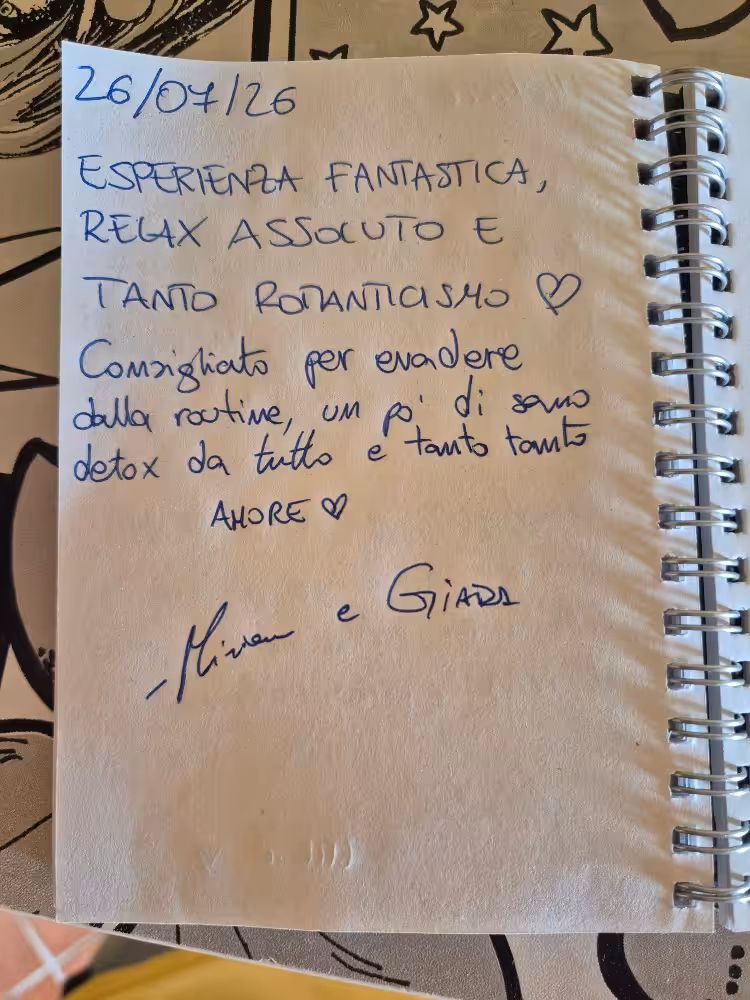 26/07/26
ESPERIENZA FANTASTICA,
RELAX ASSOLUTO E
TANTO ROMANTICISMO ♡
Consigliato per evadere
dalla routine, un po' di sano
detox da tutto e tanto tanto
AMORE ♡
- Miriam e GIADA